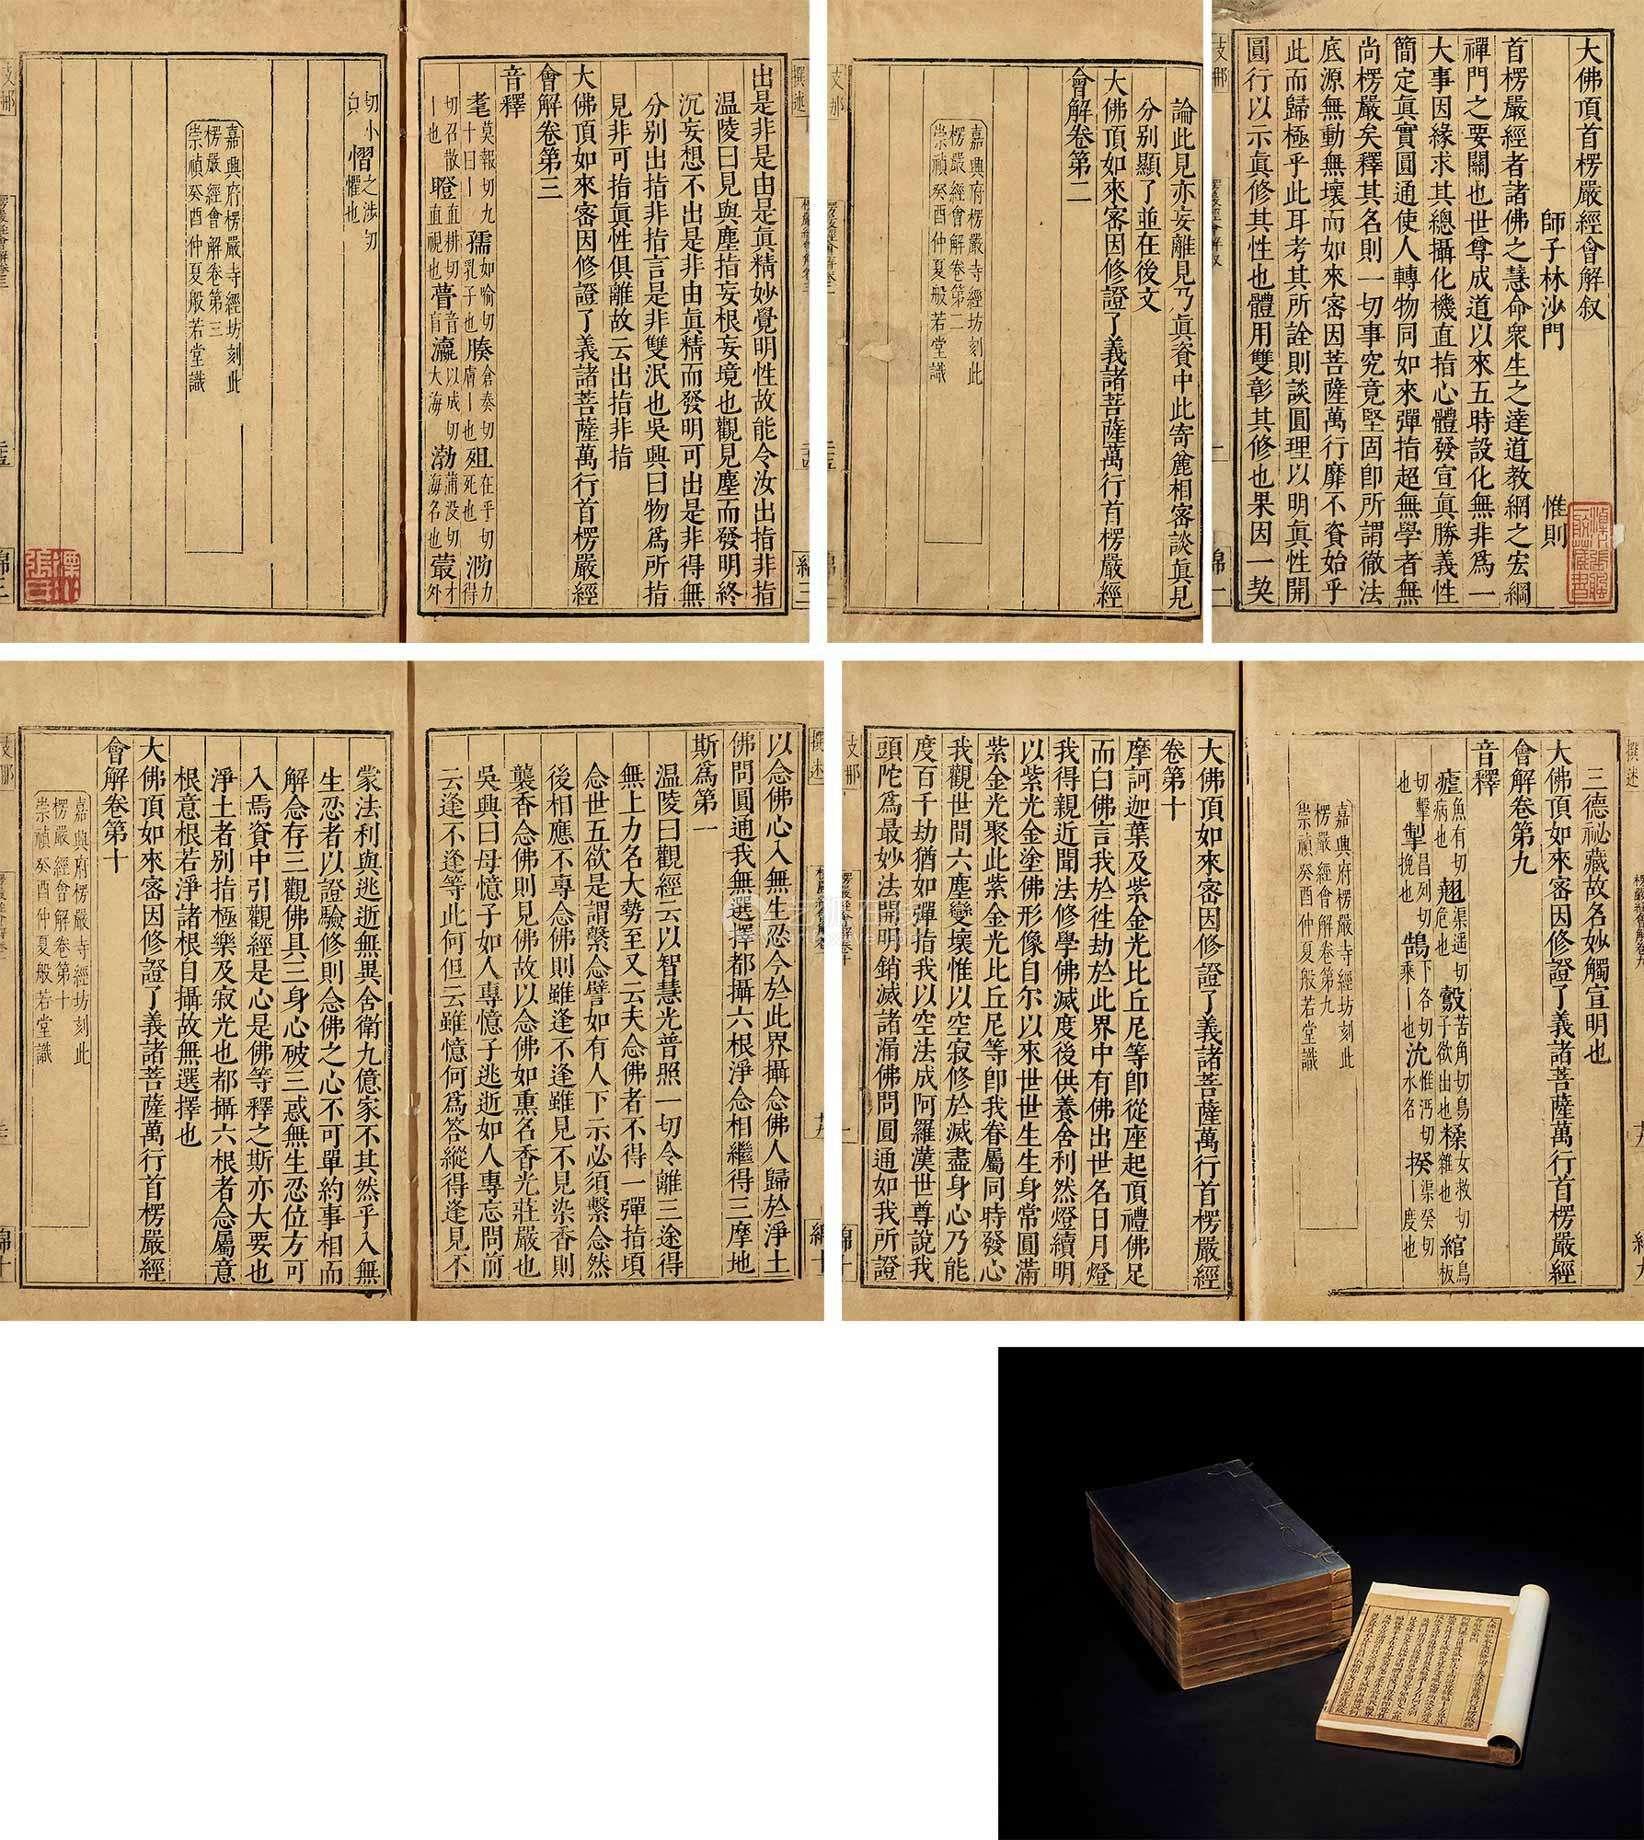 大佛頂首楞嚴經會解叙
師子林沙門
惟則
首楞嚴經者諸佛之慧命衆生之達道教網之宏綱
禪門之要關也世尊成道以來五時設化無非爲一
大事因緣求其總攝化機直指心體發宣眞勝義性
簡定眞實圓通使人轉物同如來彈指超無學者無
尚楞嚴矣釋其名則一切事究竟堅固卽所謂徹法
底源無動無壞而如來密因菩薩萬行靡不資始乎
此而歸極乎此耳考其所詮則談圓理以明眞性開
圓行以示眞修其性也體用雙彰其修也果因一契
論此見亦妄離見乃眞資中此寄麄相審談眞見
分别顯了並在後文
大佛頂如來密因修證了義諸菩薩萬行首楞嚴經
會解卷第二
嘉興府楞嚴寺經坊刻此
楞嚴經會解卷第二
崇禎癸酉仲夏般若堂識
出是非是由是眞精妙覺明性故能令汝出指非指
温陵曰見與塵指妄根妄境也觀見塵而發明終
沉妄想不出是非由眞精而發明可出是非得無
分别出指非指言是非雙泯也吳興曰物爲所指
見非可指眞性俱離故云出指非指
大佛頂如來密因修證了義諸菩薩萬行首楞嚴經
會解卷第三
音釋
切小
慴之涉切
懼也
嘉興府楞嚴寺經坊刻此
楞嚴經會解卷第三
崇禎癸酉仲夏般若堂識
三德祕藏故名妙觸宣明也
大佛頂如來密因修證了義諸菩薩萬行首楞嚴經
會解卷第九
音釋
嘉興府楞嚴寺經坊刻此
楞嚴經會解卷第九
崇禎癸酉仲夏般若堂識
大佛頂如來密因修證了義諸菩薩萬行首楞嚴經
卷第十
摩訶迦葉及紫金光比丘尼等卽從座起頂禮佛足
而白佛言我於徃劫於此界中有佛出世名日月燈
我得親近聞法修學佛滅度後供養舍利然燈續明
以紫光金塗佛形像自尔以來世世生生身常圓滿
紫金光聚此紫金光比丘尼等卽我眷屬同時發心
我觀世間六塵變壞惟以空寂修於滅盡身心乃能
度百千劫猶如彈指我以空法成阿羅漢世尊說我
頭陀爲最妙法開明銷滅諸漏佛問圓通如我所證
以念佛心入無生忍今於此界攝念佛人歸於淨土
佛問圓通我無選擇都攝六根淨念相繼得三摩地
斯爲第一
温陵曰觀經云以智慧光普照一切令離三途得
無上力名大勢至又云夫念佛者不得一彈指頃
念世五欲是謂繫念譬如有人下示必須繫念然
後相應不專念佛則雖逢不逢雖見不見染香則
襲香念佛則見佛故以念佛如熏名香光莊嚴也
吳興曰母憶子如人專憶子逃逝如人專忘問前
云逢不逢等此何但云雖憶何爲答縱得逢見不
蒙法利與逃逝無異舍衛九億家不其然乎入無
生忍者以證驗修則念佛之心不可單約事相而
解念存三觀佛具三身心破三惑無生忍位方可
入焉資中引觀經是心是佛等釋之斯亦大要也
淨土者别指極樂及寂光也都攝六根者念屬意
根意根若淨諸根自攝故無選擇也
大佛頂如來密因修證了義諸菩薩萬行首楞嚴經
會解卷第十
嘉興府楞嚴寺經坊刻此
楞嚴經會解卷第十
崇禎癸酉仲夏般若堂識